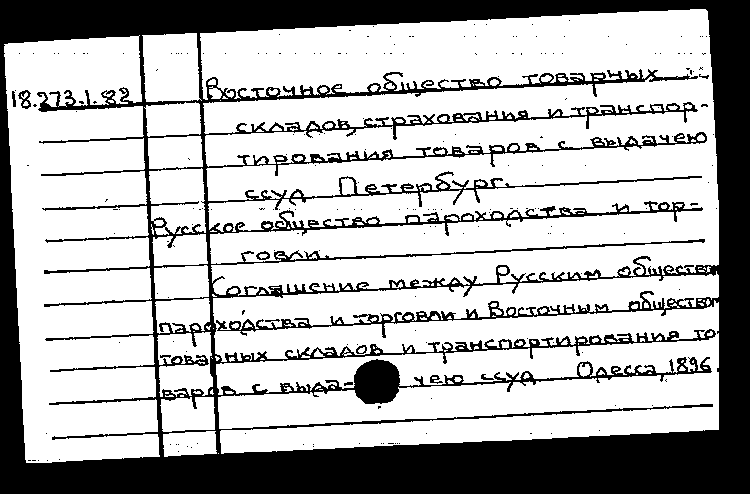 18.273.1.82 Восточное общество товарных
складов, страхования и транспор-
тирования товаров с выдачею
ссуд Петербург.
Русское общество пароходства и тор-
говли.
Соглашение между Русским обществом
пароходства и торговли и Восточным обществом
товарных складов и транспортирования то-
варов с выда- чею ссуд Одесса, 1896.